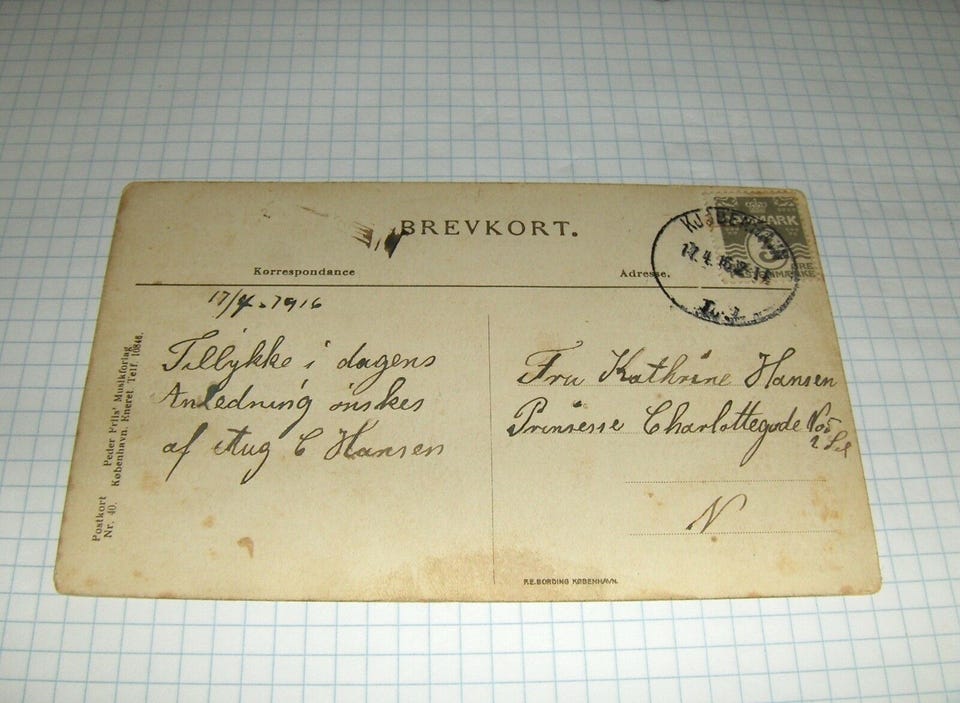 BREVKORT.
Korrespondance
Adresse.
KJØBENHAVN
17.4.16.2-
L.1.
DANMARK
ØRE
17/4.-1916
Tillykke i dagens
Anledning ønskes
af Aug C Hansen
Fru Kathrine Hansen
Prinsesse Charlottegade No5
2 Sal
N
Postkort Peder Friis' Musikforlag
Nr. 40. København. Eneret. Telf. 10846.
F.E.BORDING KØBENHAVN.